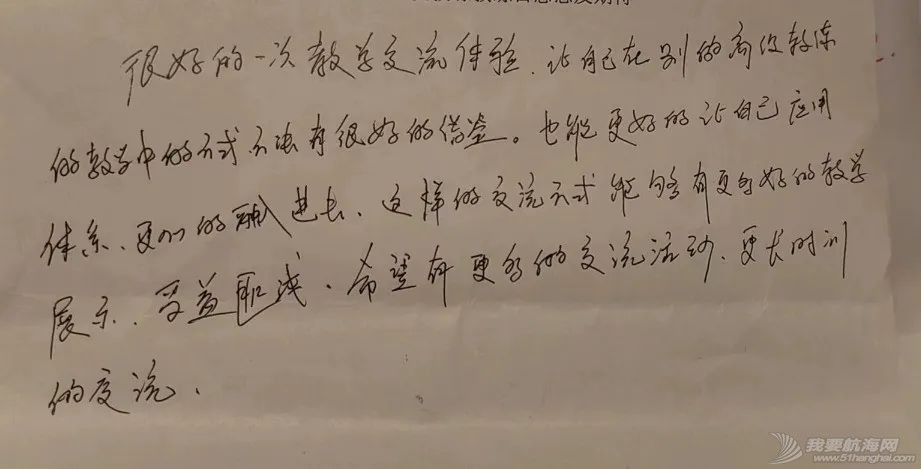 很好的一次教学交流体验、让自己在别的高级教练
的教学中的方式方法有很好的借鉴。也能更好的让自己应用
体系、更加的融入进去、这样的交流方式能够有更多好的教学
展示、受益匪浅、希望有更多的交流活动、更长时间
的交流、
我要航海网
www.51hanghai.com